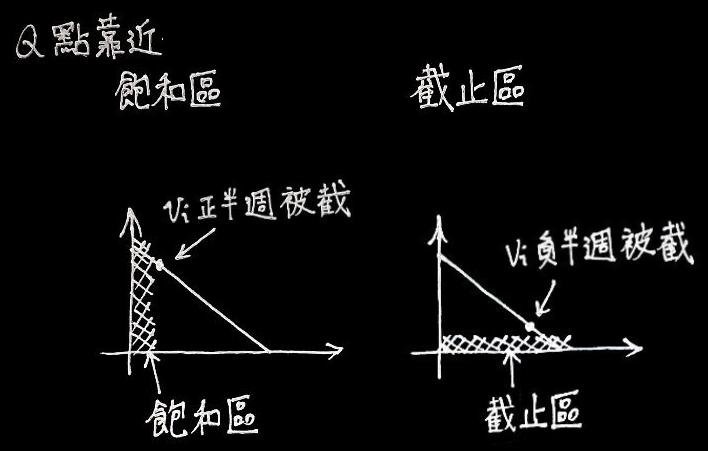 Q點靠近
飽和區
截止區
Vi正半週被截
Vi負半週被截
飽和區
截止區